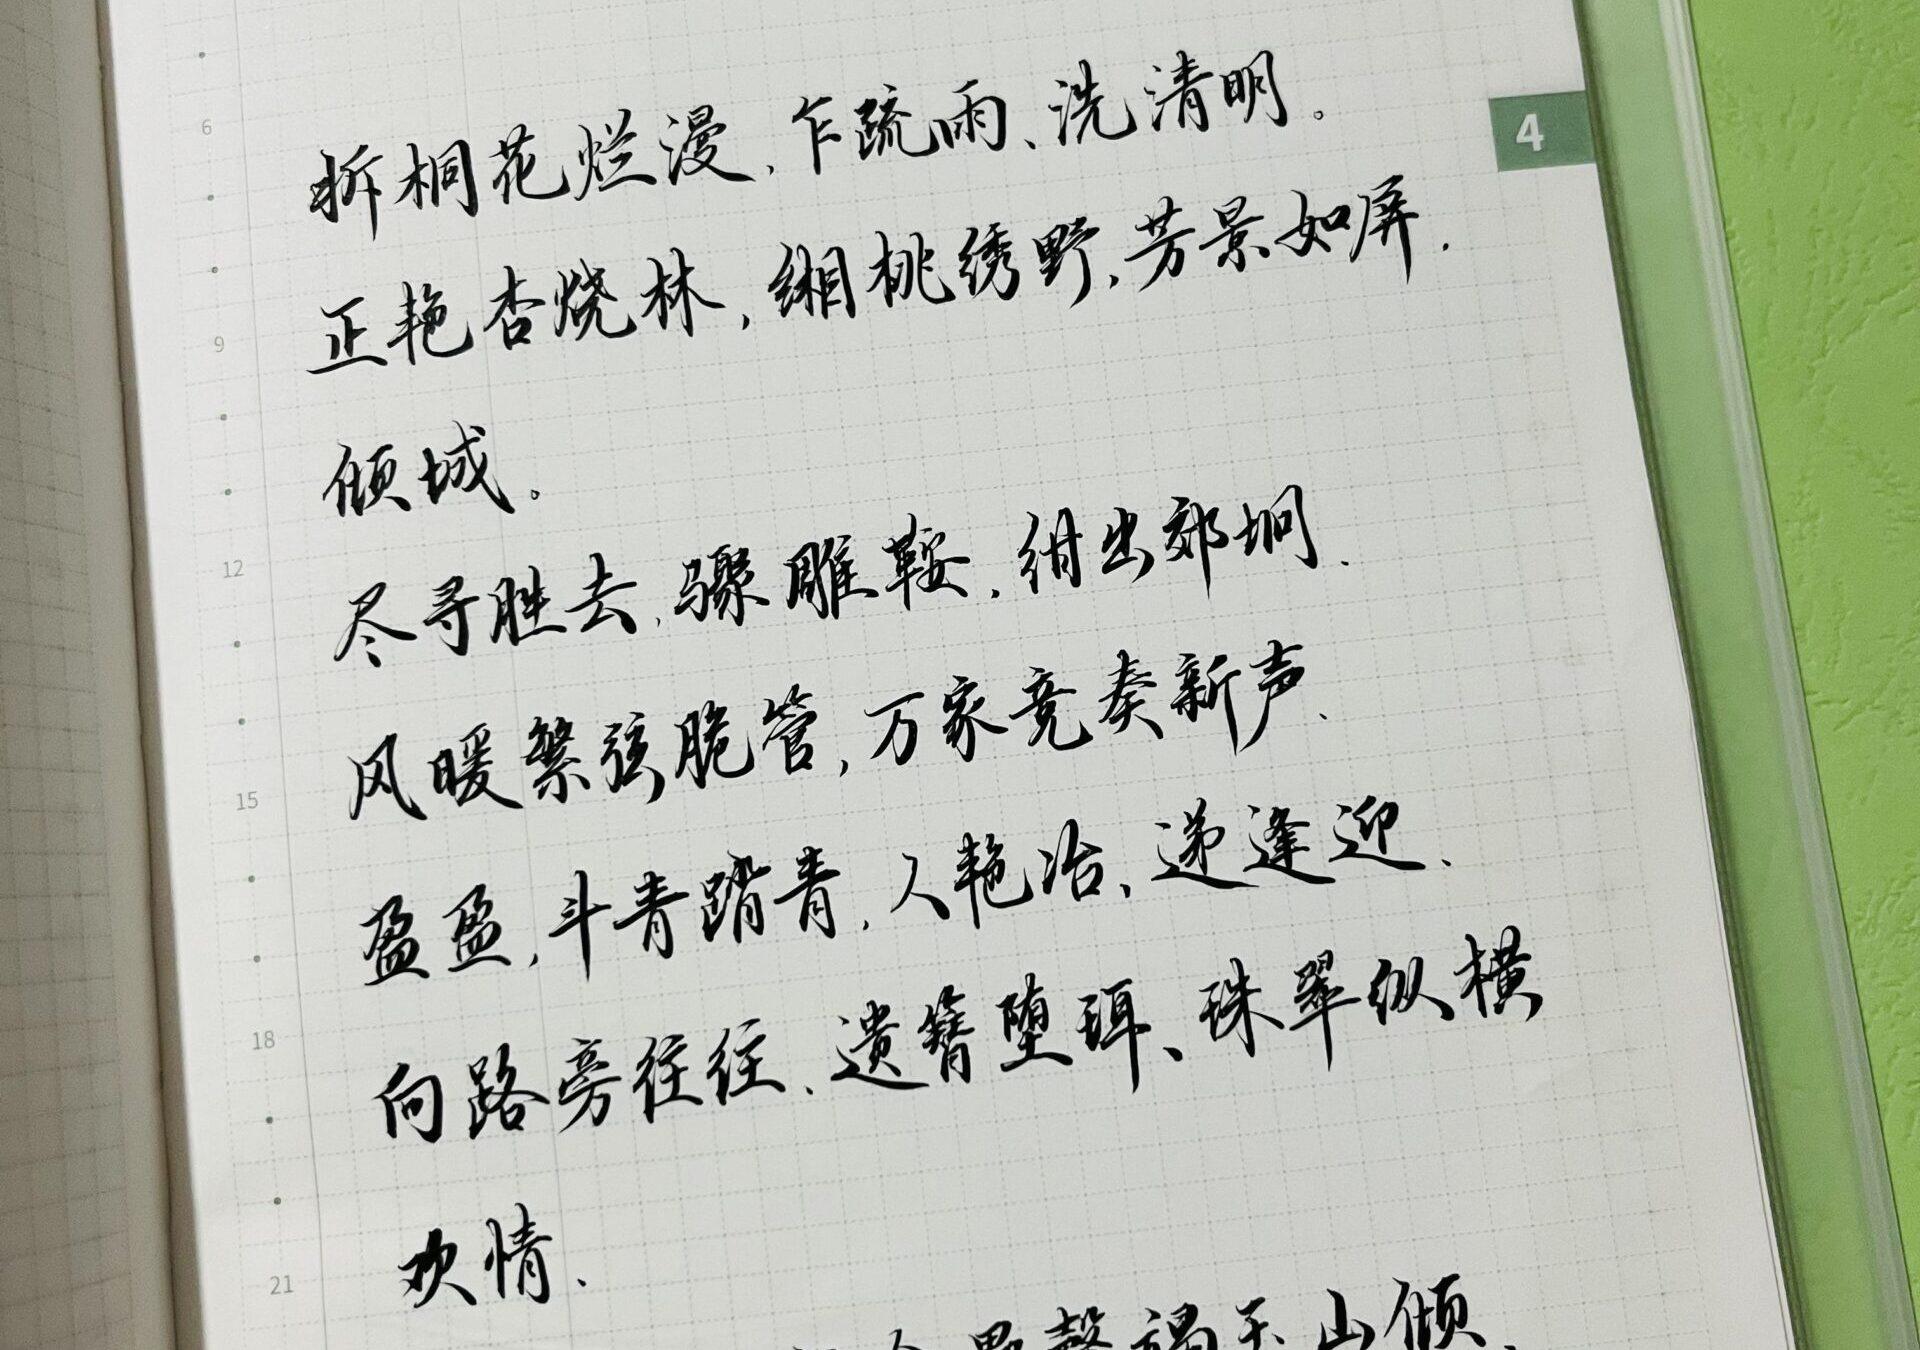 拆桐花烂漫、乍疏雨、洗清明。
4
6
正艳杏烧林,缃桃绣野,芳景如屏.
9
倾城。
尽寻胜去,骤雕鞍,绀出郊坰.
12
风暖繁弦脆管,万家竞奏新声.
15
盈盈,斗青踏青,人艳冶、递逢迎.
向路旁往往、遗簪堕珥、珠翠纵横
18
欢情.
21
山倾,